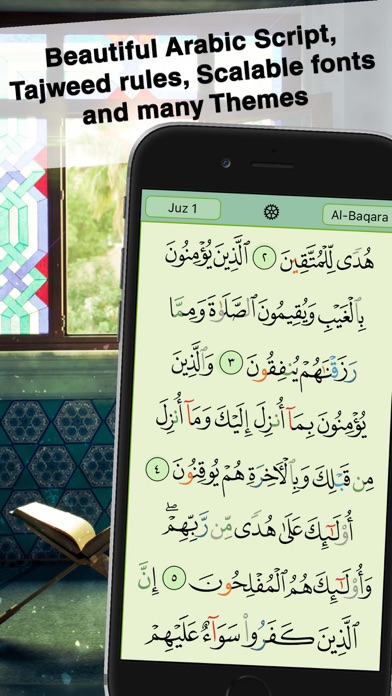 Beautiful Arabic Script,
Tajweed rules, Scalable fonts
and many Themes
Juz 1
Al-Baqara
هُدًى لِّلْمُتَّقِينَ ٢ ٱلَّذِينَ يُؤْمِنُونَ
بِٱلْغَيْبِ وَيُقِيمُونَ ٱلصَّلَوٰةَ وَمِمَّا
رَزَقْنَـٰهُمْ يُنفِقُونَ ٣ وَٱلَّذِينَ
يُؤْمِنُونَ بِمَآ أُنزِلَ إِلَيْكَ وَمَآ أُنزِلَ
مِن قَبْلِكَ وَبِٱلْـَٔاخِرَةِ هُمْ يُوقِنُونَ ٤
أُو۟لَـٰٓئِكَ عَلَىٰ هُدًى مِّن رَّبِّهِمْ ۖ
وَأُو۟لَـٰٓئِكَ هُمُ ٱلْمُفْلِحُونَ ٥ إِنَّ
ٱلَّذِينَ كَفَرُوا۟ سَوَآءٌ عَلَيْهِمْ